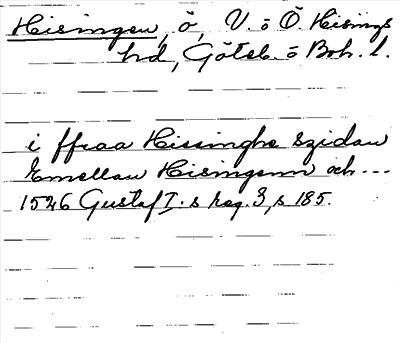 Hisingen, ö, V. o Ö. Hisings
hd, Göteb. o Boh. l.
i ffraa Hissinghe szidan
Emellan Hisingenn och ...
1526 Gustaf I:s reg. 3, s 185.